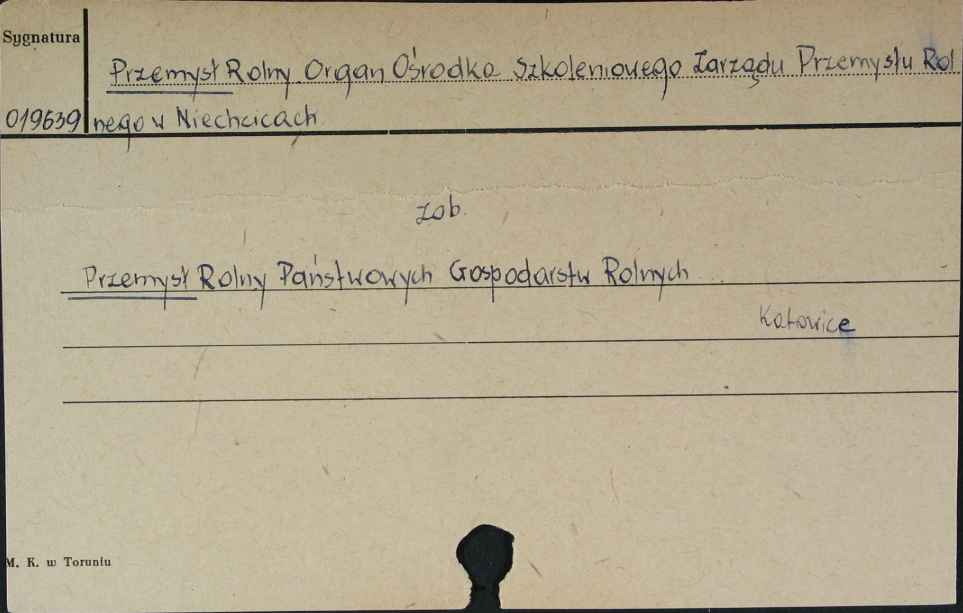 Sygnatura
Przemysł Rolny Organ Ośrodka Szkoleniowego Zarządu Przemysłu Rol
019639 nego w Niechcicach
zob.
Przemysł Rolny Państwowych Gospodarstw Rolnych
Katowice
M. K. w Toruniu